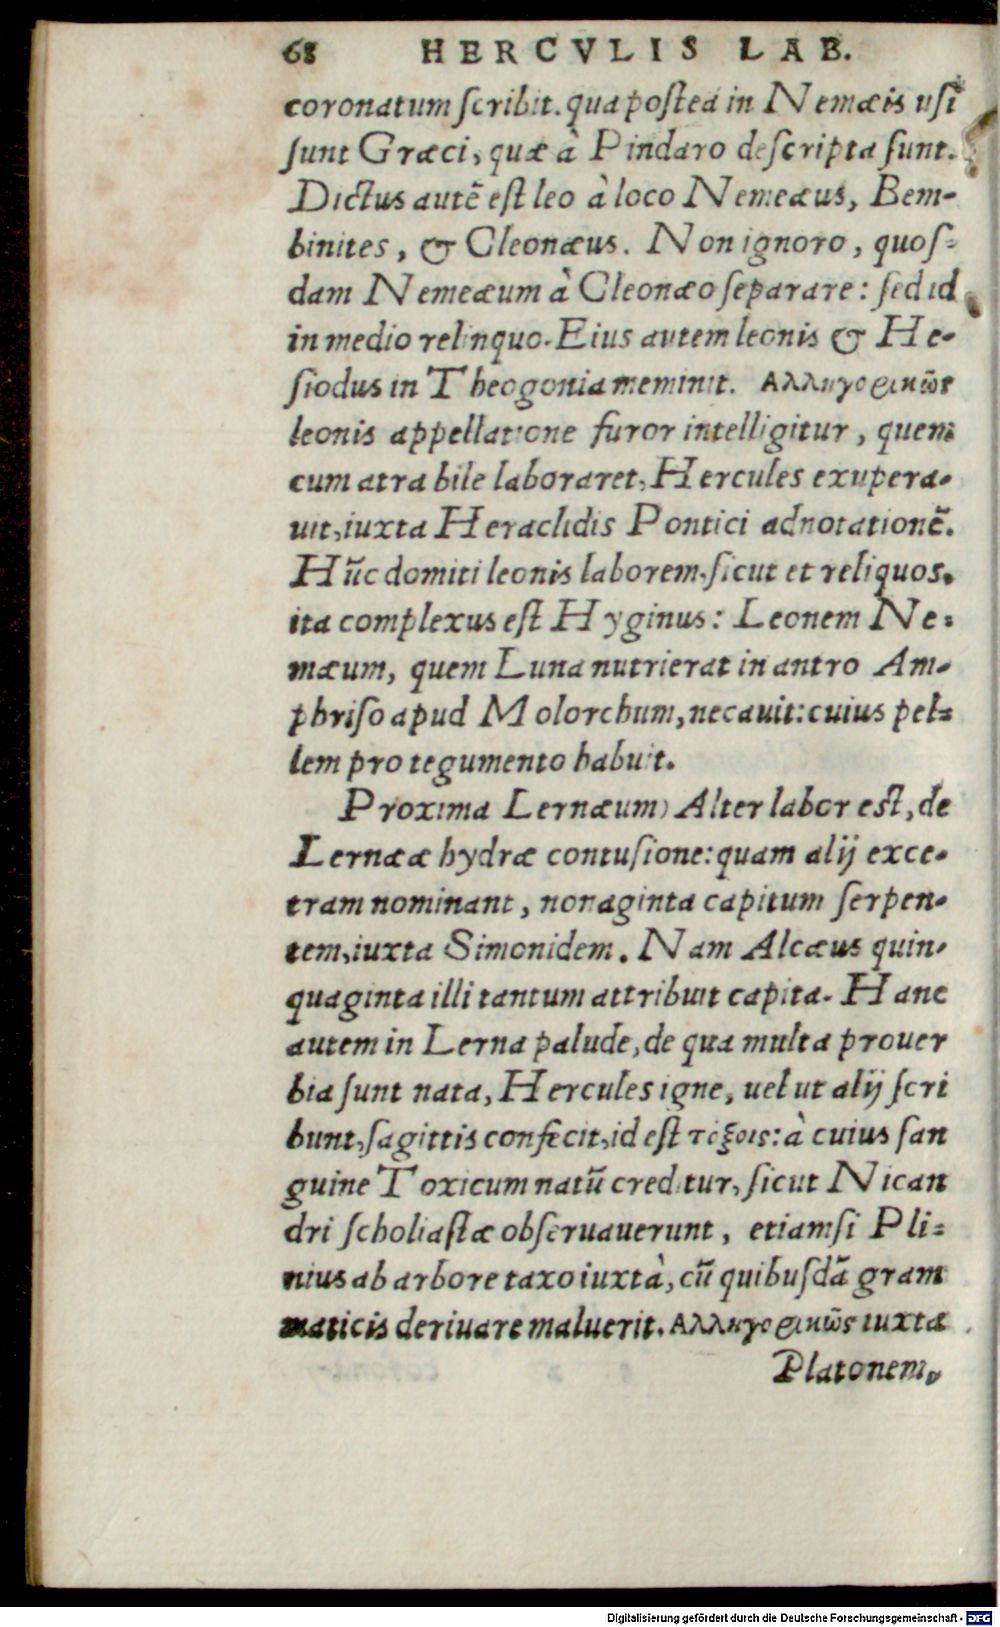 68 HERCVLIS LAB.
coronatum ſcribit. qua poſtea in Nemæis uſi
ſunt Græci, quæ à Pindaro deſcripta ſunt.
Dictus autē eſt leo à loco Nemeæus, Bem-
binites, & Cleonæus. Non ignoro, quoſ-
dam Nemeæum à Cleonæo ſeparare: ſed id
in medio relinquo. Eius autem leonis & He-
ſiodus in Theogonia meminit. Αλληγορικῶς
leonis appellatione furor intelligitur, quem
cum atra bile laboraret, Hercules exupera-
uit, iuxta Heraclidis Pontici adnotationē.
Hūc domiti leonis laborem, ſicut et reliquos,
ita complexus eſt Hyginus: Leonem Ne-
mæum, quem Luna nutrierat in antro Am-
phriſo apud Molorchum, necauit: cuius pel-
lem pro tegumento habuit.
Proxima Lernæum) Alter labor eſt, de
Lernææ hydræ contuſione: quam alij exce-
tram nominant, nonaginta capitum ſerpen-
tem, iuxta Simonidem. Nam Alcæus quin-
quaginta illi tantum attribuit capita. Hanc
autem in Lerna palude, de qua multa prouer
bia ſunt nata, Hercules igne, uel ut alij ſcri
bunt, ſagittis confecit, id eſt τόξοις: à cuius ſan
guine Toxicum natū creditur, ſicut Nican
dri ſcholiaſtæ obſeruauerunt, etiamſi Pli-
nius ab arbore taxo iuxtà, cū quibuſdā gram
maticis deriuare maluerit. Αλληγορικῶς iuxta
Platonem,
Digitalisierung gefördert durch die Deutsche Forschungsgemeinschaft - DFG